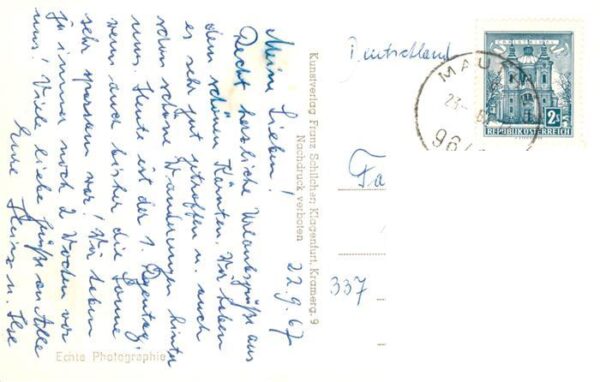 22.9.67
Meine Lieben!
Recht herzliche Urlaubsgrüße aus
dem schönen Kärnten. Wir haben
es sehr gut getroffen u. auch
schon schöne Wanderungen hinter
uns. Heute ist der 1. Regentag,
wenn auch bisher die Sonne
sehr sparsam war! Wir haben
ja immer noch 2 Wochen vor
uns! Viele liebe Grüße an Alle
Eure Heinz u. Ilse
Echte Photographie
Kunstverlag Franz Schilcher, Klagenfurt, Kramerg. 9
Nachdruck verboten
Deutschland
MAU
23
96
PARLAKIRCHE
2S
REPUBLIK ÖSTERREICH
Fa
337